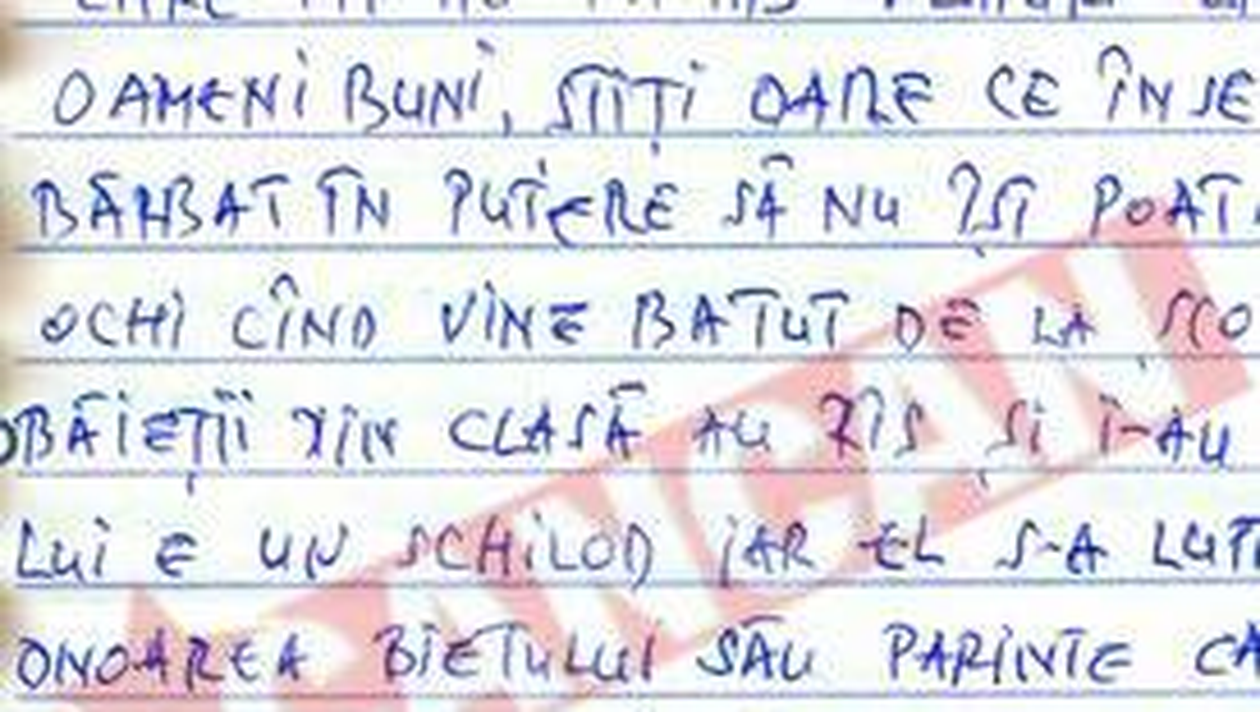 OAMENI BUNI, STIȚI OARE CE ÎNSE
BĂRBAT ÎN PUTERE SĂ NU ÎȘI POAT
OCHI CÎND VINE BATUT DE LA ȘCO
BĂIEȚII DIN CLASĂ AU ZIS ȘI I-AU
LUI E UN SCHILOD IAR EL S-A LUT
ONOAREA BIETULUI SĂU PARINTE CA